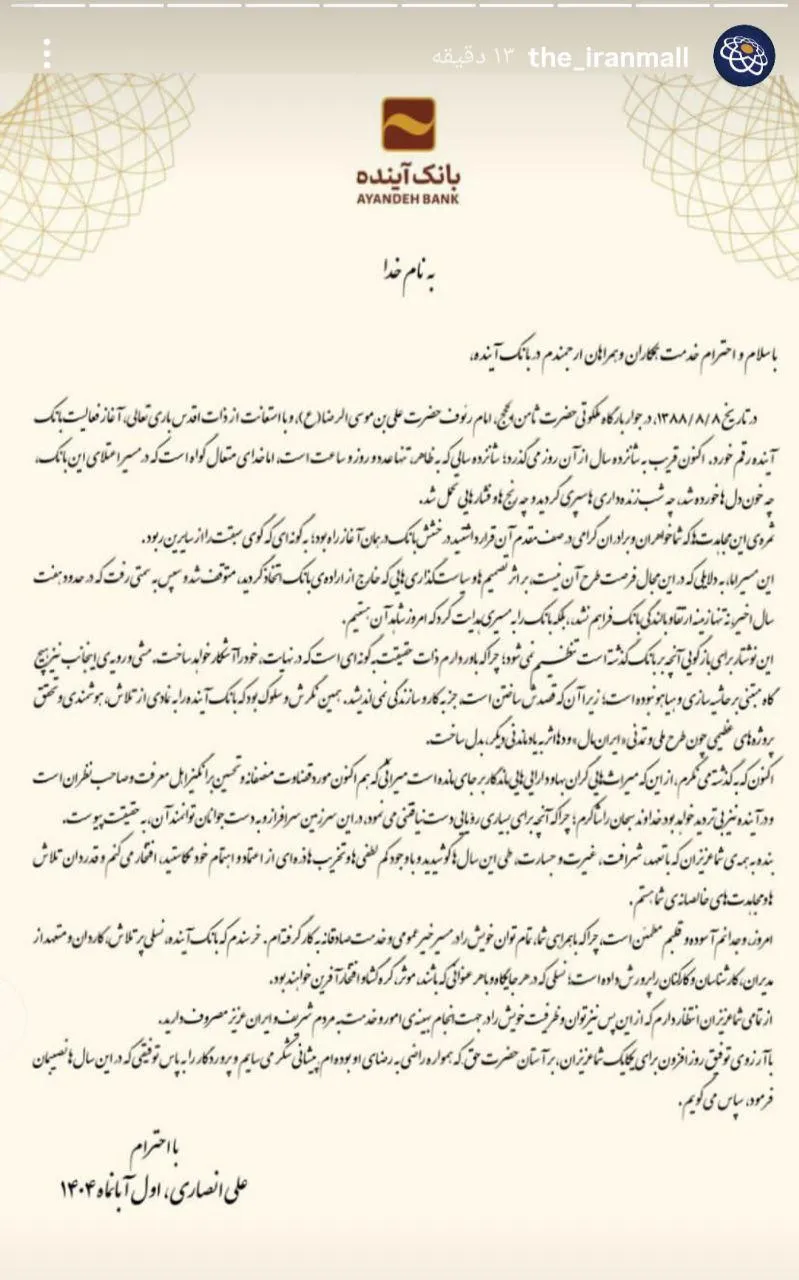 the_iranmall ۱۳ دقیقه
بانک آینده
AYANDEH BANK
به نام خدا
با سلام و احترام خدمت همکاران و همراهان ارجمندم در بانک آینده،
در تاریخ ۱۳۸۸/۸/۸، در جوار بارگاه ملکوتی حضرت ثامن‌الحجج، امام رئوف حضرت علی بن موسی الرضا(ع)، و با استعانت از ذات اقدس باری تعالی، آغاز فعالیت بانک
آینده رقم خورد. اکنون قریب به شانزده سال از آن روز می‌گذرد؛ شانزده سالی که به ظاهر، تنها عدد و روز و ساعت است، اما خدای متعال گواه است که در مسیر اعتلای این بانک،
چه خون دل‌ها خورده شد، چه شب زنده‌داری‌ها سپری گردید و چه رنج‌ها و فشارهایی تحمل شد.
ثمره‌ی این مجاهدت‌ها که شما خواهران و برادران گرامی در صف مقدم آن قرار داشتید درخشش بانک در همان آغاز راه بود؛ به گونه‌ای که گوی سبقت را از سایرین ربود.
این مسیر اما، به دلایلی که در این مجال فرصت طرح آن نیست، بر اثر تصمیم‌ها و سیاست‌گذاری‌هایی که خارج از اراده‌ی بانک اتخاذ گردید، متوقف شد و سپس به سمتی رفت که در حدود هفت
سال اخیر، نه تنها زمینه ارتقاء و بالندگی بانک فراهم نشد، بلکه بانک را به مسیری هدایت کرد که امروز شاهد آن هستیم.
این نوشتار برای بازگویی آنچه بر بانک گذشته است تنظیم نمی‌شود؛ چرا که باور دارم ذات حقیقت به گونه‌ای است که در نهایت، خود را آشکار خواهد ساخت. مشی و رویه‌ی اینجانب نیز هیچ
گاه مبتنی بر حاشیه‌سازی و هیاهو نبوده است؛ زیرا آن که قصدش ساختن است، جز به کار و سازندگی نمی‌اندیشد. همین نگرش و سلوک بود که بانک آینده را به نمادی از تلاش، هوشمندی و تحقق
پروژه‌های عظیمی چون طرح ملی و تمدنی «ایران مال» و ده‌ها اثر به یادماندنی دیگر، بدل ساخت.
اکنون که به گذشته می‌نگرم، از این که میراث‌هایی گران‌بها و دارایی‌هایی ماندگار بر جای مانده است میراثی که هم اکنون مورد قضاوت منصفانه و تحسین برانگیز اهل معرفت و صاحب نظران است
و در آینده نیز بی‌تردید خواهد بود خداوند سبحان را شاکرم؛ چرا که آنچه برای بسیاری رؤیایی دست نیافتنی می‌نمود، در این سرزمین سرافراز و به دست جوانان توانمند آن، به حقیقت پیوست.
بنده به همه‌ی شما عزیزان که با تعهد، شرافت، غیرت و جسارت، طی این سال‌ها کوشیدید و با وجود کم لطفی‌ها و تخریب‌ها ذره‌ای از اعتماد و اهتمام خود نکاستید، افتخار می‌کنم و قدردان تلاش
ها و مجاهدت‌های خالصانه‌ی شما هستم.
امروز، وجدانم آسوده و قلبم مطمئن است، چرا که با همراهی شما، تمام توان خویش را در مسیر خیر عمومی و خدمت صادقانه به کار گرفته‌ام. خرسندم که بانک آینده، نسلی پرتلاش، کاردان و متعهد از
مدیران، کارشناسان و کارکنان را پرورش داده است؛ نسلی که در هر جایگاه و با هر عنوانی که باشند، موثر، گره‌گشا و افتخارآفرین خواهند بود.
از تمامی شما عزیزان انتظار دارم که از این پس نیز توان و ظرفیت خویش را در جهت انجام بهینه‌ی امور و خدمت به مردم شریف و ایران عزیز مصروف دارید.
با آرزوی توفیق روز افزون برای یکایک شما عزیزان، بر آستان حضرت حق که همواره راضی به رضای او بوده‌ام پیشانی شکر می‌سایم و پروردگار را به پاس توفیقی که در این سال‌ها نصیبمان
فرمود، سپاس می‌گویم.
با احترام
علی انصاری، اول آبانماه ۱۴۰۴